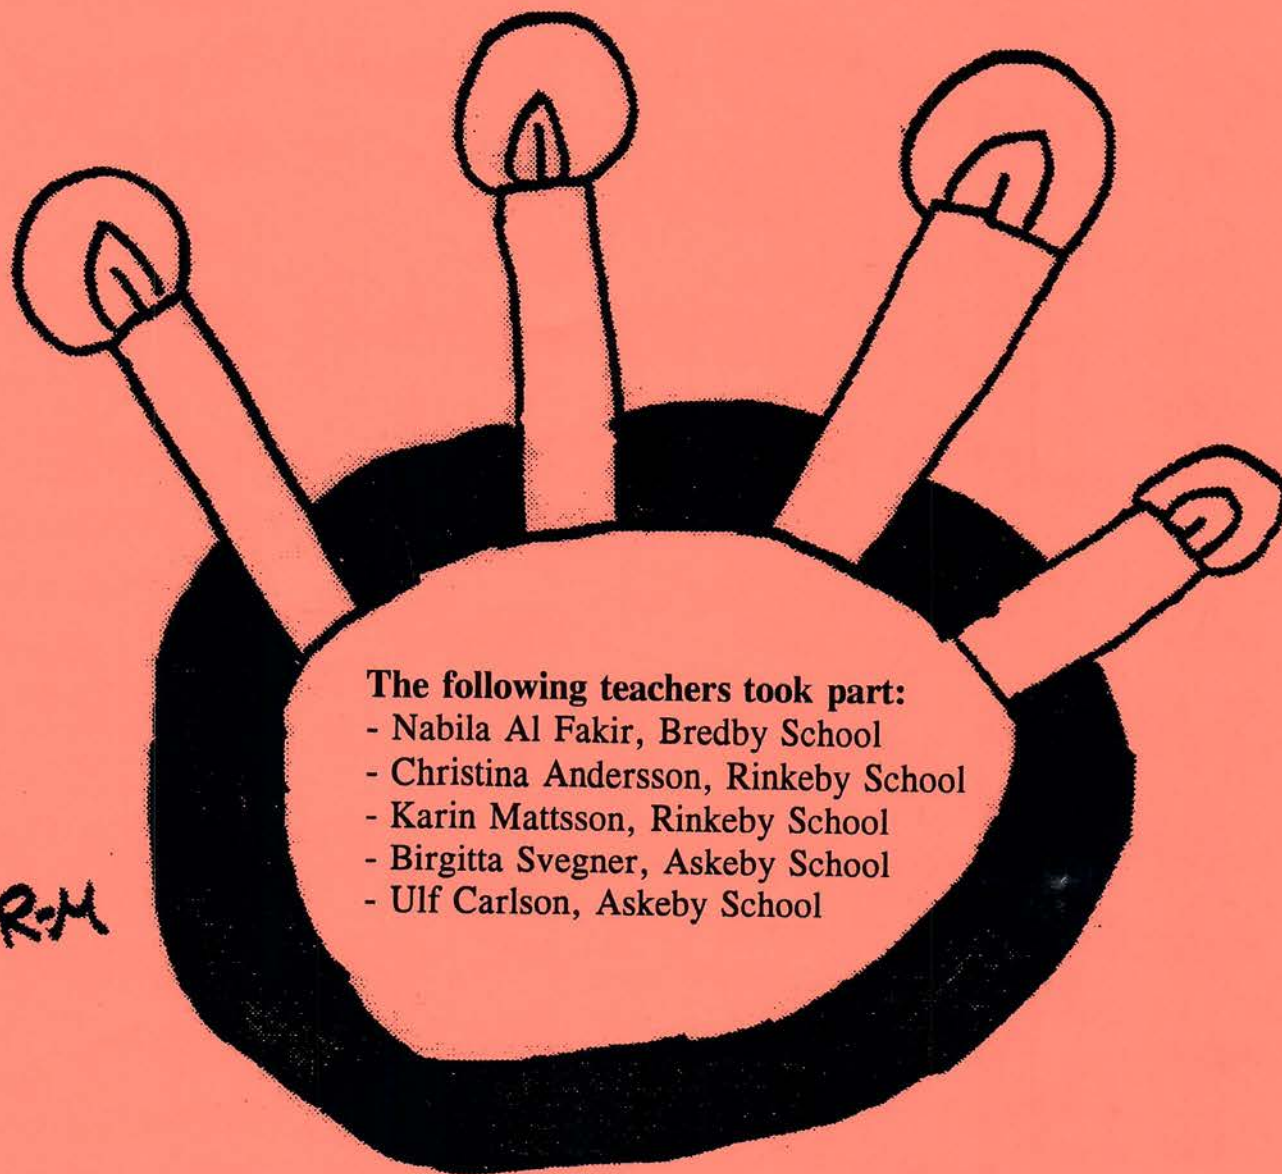 The following teachers took part:
- Nabila Al Fakir, Bredby School
- Christina Andersson, Rinkeby School
- Karin Mattsson, Rinkeby School
- Birgitta Svegner, Askeby School
- Ulf Carlson, Askeby School
R-M